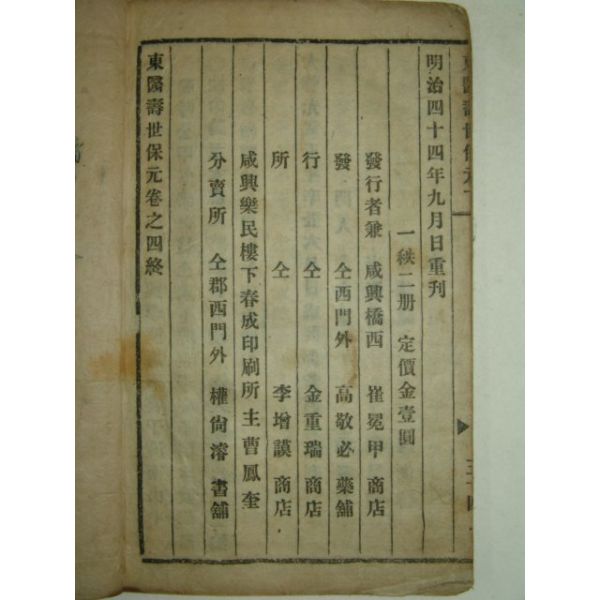 明治四十四年九月日重刊
一秩二册 定價金壹圓
發行者兼 咸興橋西 崔冕甲 商店
發 仝西門外 高敬必 藥舖
行 仝 金重瑞 商店
所 仝 李增謨 商店
咸興樂民樓下春成印刷所主曹鳳奎
分賣所 仝郡西門外 權尙溶 書舖
東醫壽世保元卷之四終